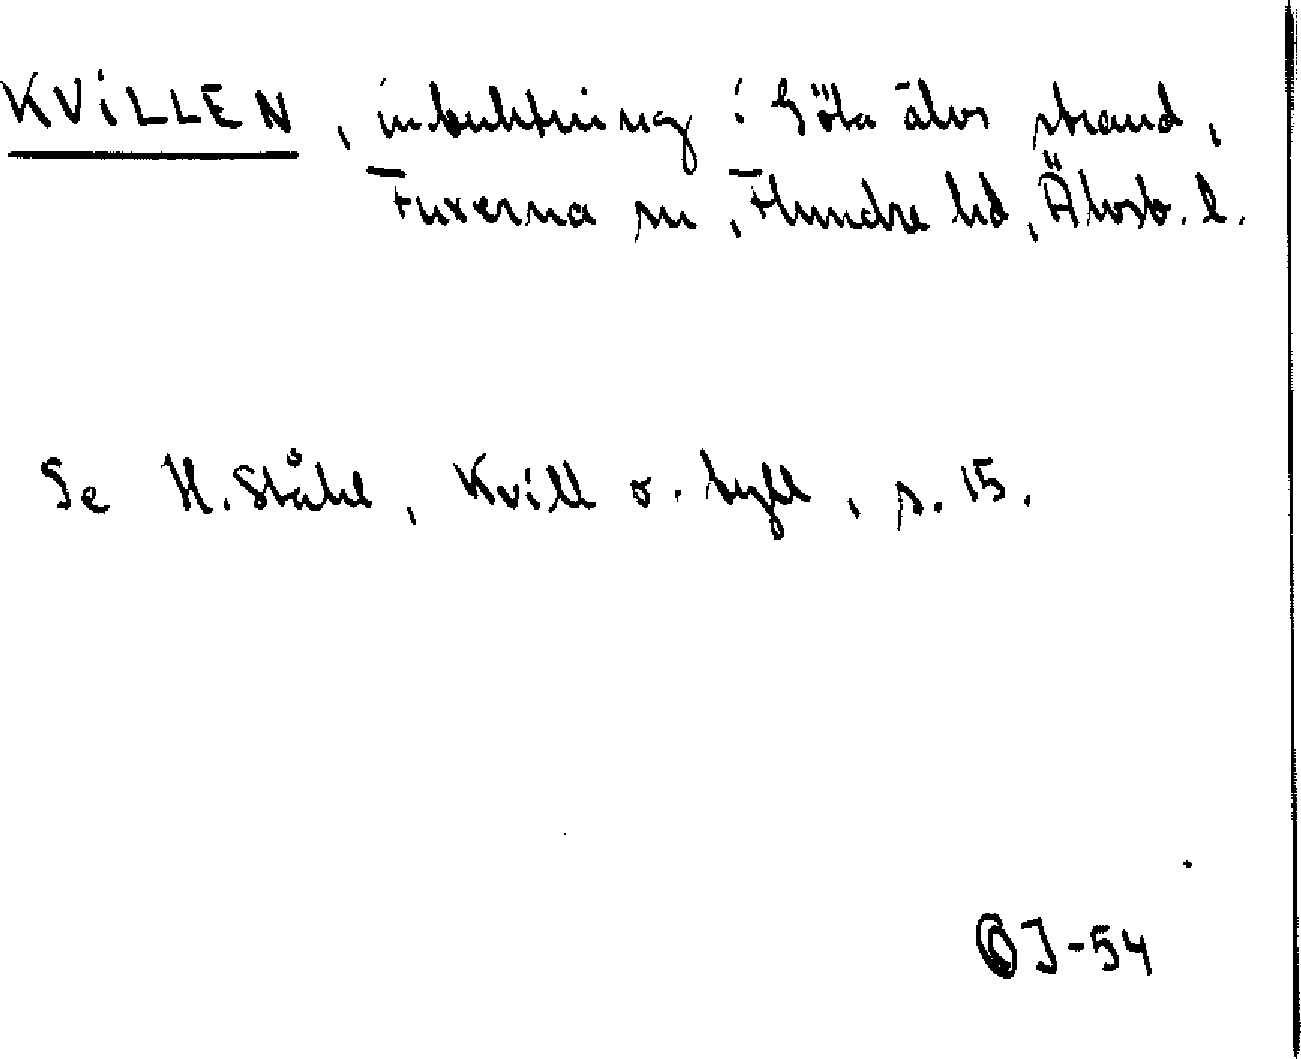 KVILLEN, inbuktning i Göta älvs strand,
Fuxerna sn, Flundre hd, Älvsb. l.
Se H. Ståhl, Kvill o. tyll, s. 15.
J-54